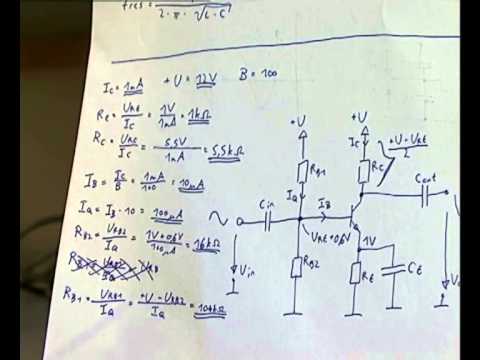 fres = 1 / 2·π·√L·C
Ic = 1mA +U = 12V B = 100
RE = URE / Ic = 1V / 1mA = 1kΩ
Rc = URC / Ic = 5,5V / 1mA = 5,5kΩ
IB = Ic / B = 1mA / 100 = 10µA
IQ = IB · 10 = 100µA
RB2 = URB2 / IQ = 1V+0,6V / 100µA = 16kΩ
RB1 = URB1 / IQ = +U - URB2 / IQ = 104kΩ
+U +U
Ic +U - URE / 2
RB1 Rc
IQ Cout
Cin IB
URE + 0,6V 1V
Vin RB2 RE CE